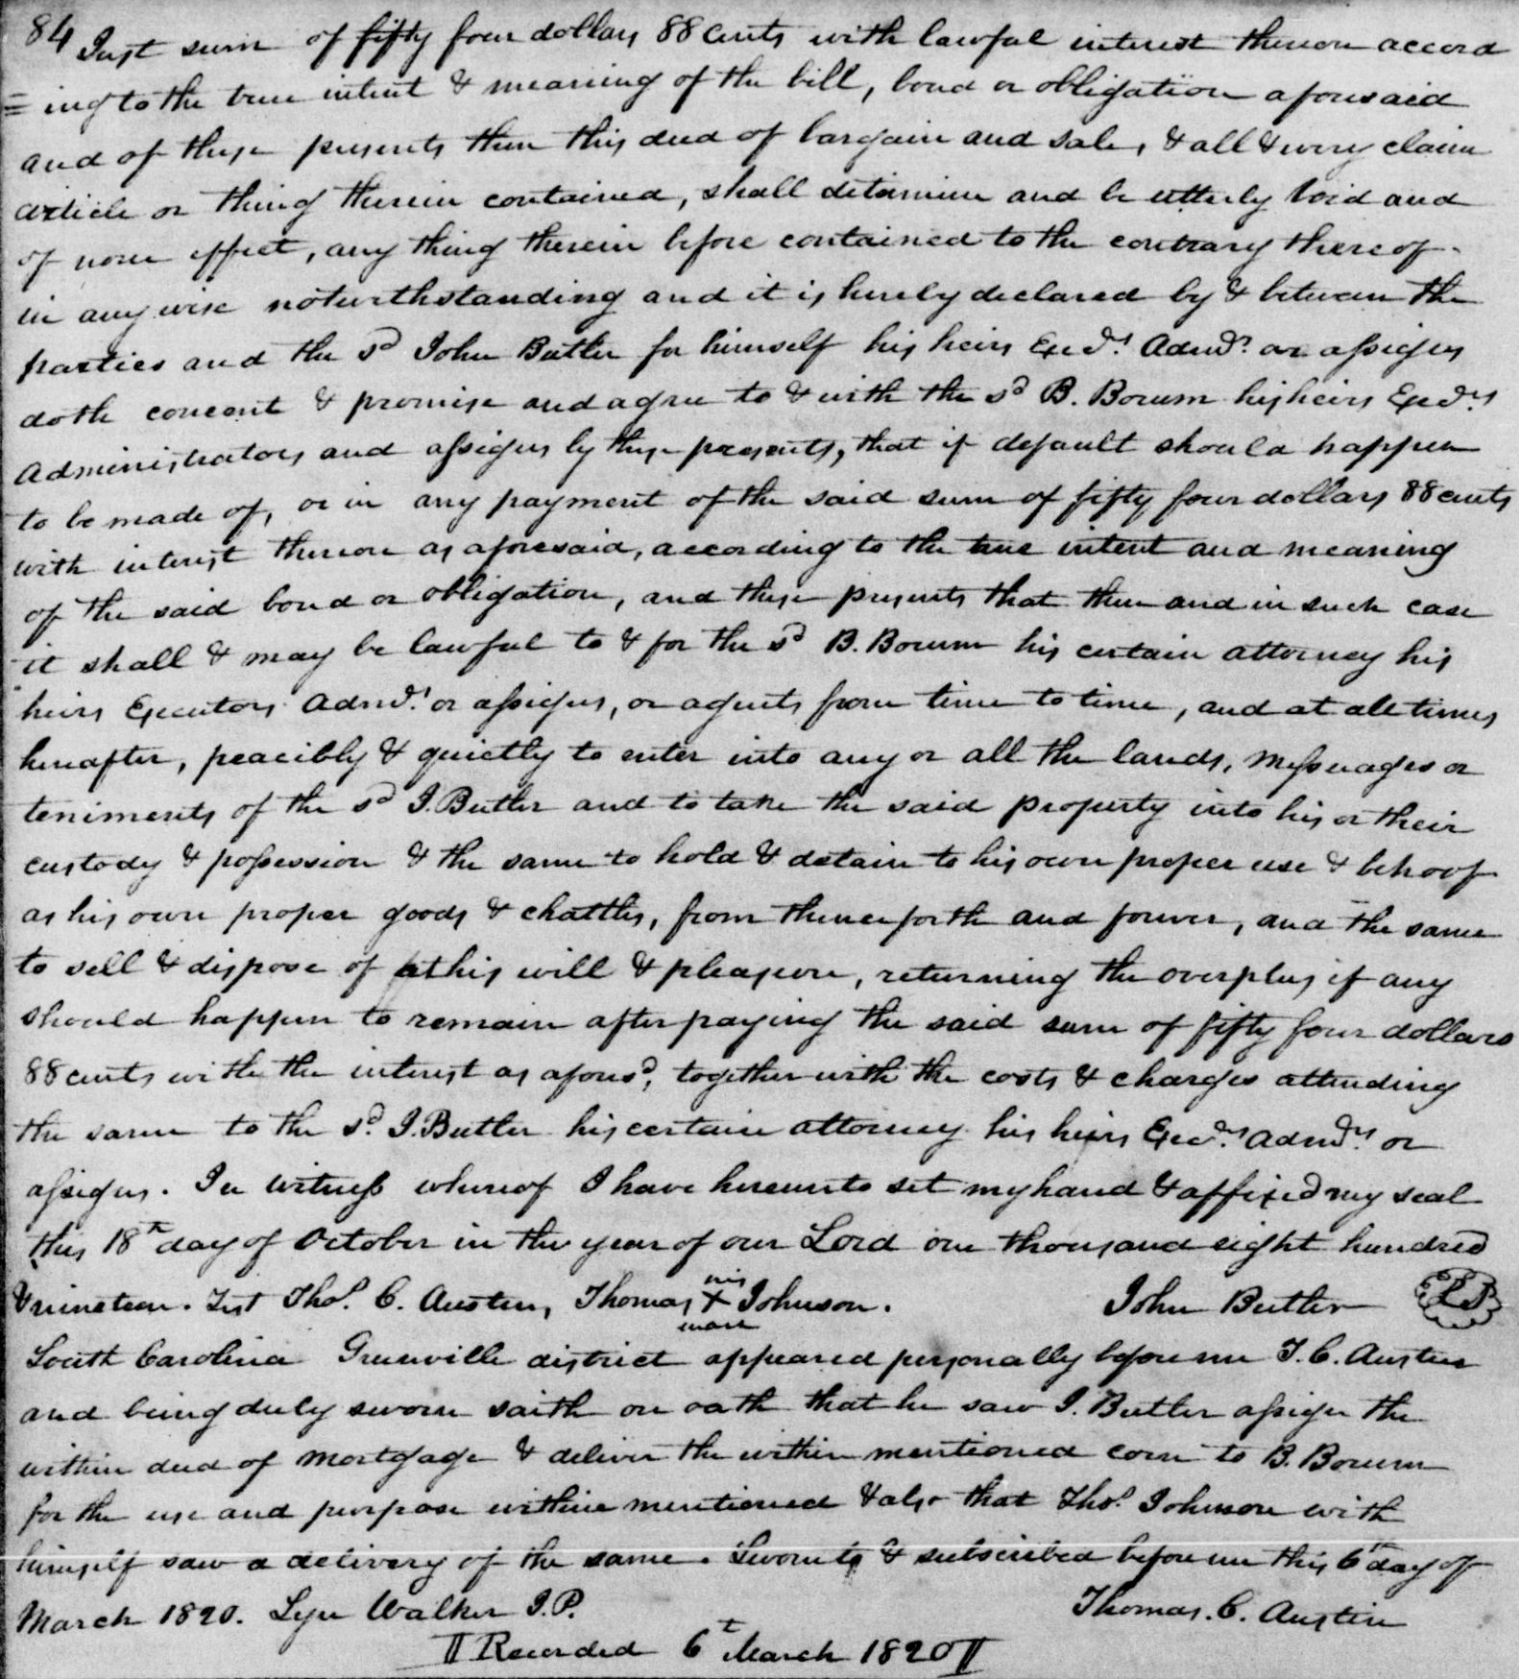 84 Just sum of fifty four dollars 88 cents with lawful interest thereon accord
=ing to the true intent & meaning of the bill, bond or obligation aforesaid
and of these presents then this deed of bargain and sale, & all & every claim
article or thing therein contained, shall determine and be utterly void and
of none effect, any thing therein before contained to the contrary thereof
in any wise notwithstanding and it is hereby declared by & between the
parties and the sd John Butler for himself his heirs Exd.rs Admd.rs or assigns
doth concent & promise and agree to & with the sd B. Borum his heirs Exd.rs
Administrators and assigns by these presents, that if default should happen
to be made of, or in any payment of the said sum of fifty four dollars 88 cents
with interest thereon as aforesaid, according to the true intent and meaning
of the said bond or obligation, and these presents that then and in such case
it shall & may be lawful to & for the sd B. Borum his certain attorney his
heirs Executors Admd.rs or assigns, or agents from time to time, and at all times
hereafter, peacibly & quietly to enter into any or all the lands, messuages or
teniments of the sd J. Butler and to take the said property into his or their
custody & possession & the same to hold & detain to his own proper use & behoof
as his own proper goods & chattles, from thenceforth and forever, and the same
to sell & dispose of at his will & pleasure, returning the overplus if any
should happen to remain after paying the said sum of fifty four dollars
88 cents with the interest as aforesd, together with the costs & charges attending
the same to the sd. J. Butler his certain attorney his heirs Execd.rs Admd.rs or
assigns. In witness whereof I have hereunto set my hand & affixed my seal
this 18th day of October in the year of our Lord one thousand eight hundred
& nineteen. Test Thos. C. Austin, Thomas his X mark Johnson. John Butler LS
South Carolina Greenville district appeared personally before me T. C. Austin
and being duly sworn saith on oath that he saw J. Butler assign the
within deed of mortgage & deliver the within mentioned corn to B. Borum
for the use and purpose within mentioned & also that Thos. Johnson with
himself saw a delivery of the same. Sworn to & subscribed before me this 6th day of
March 1820. Walker J.P. Thomas. C. Austin
Recorded 6t March 1820